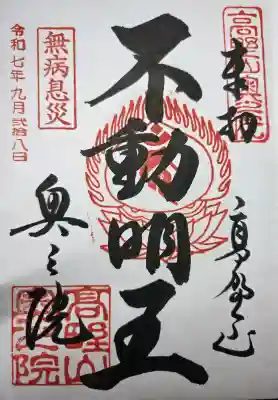 奉拝
高野山
不動明王
奥之院
無病息災
令和七年九月弐拾八日
高野山
奥之院